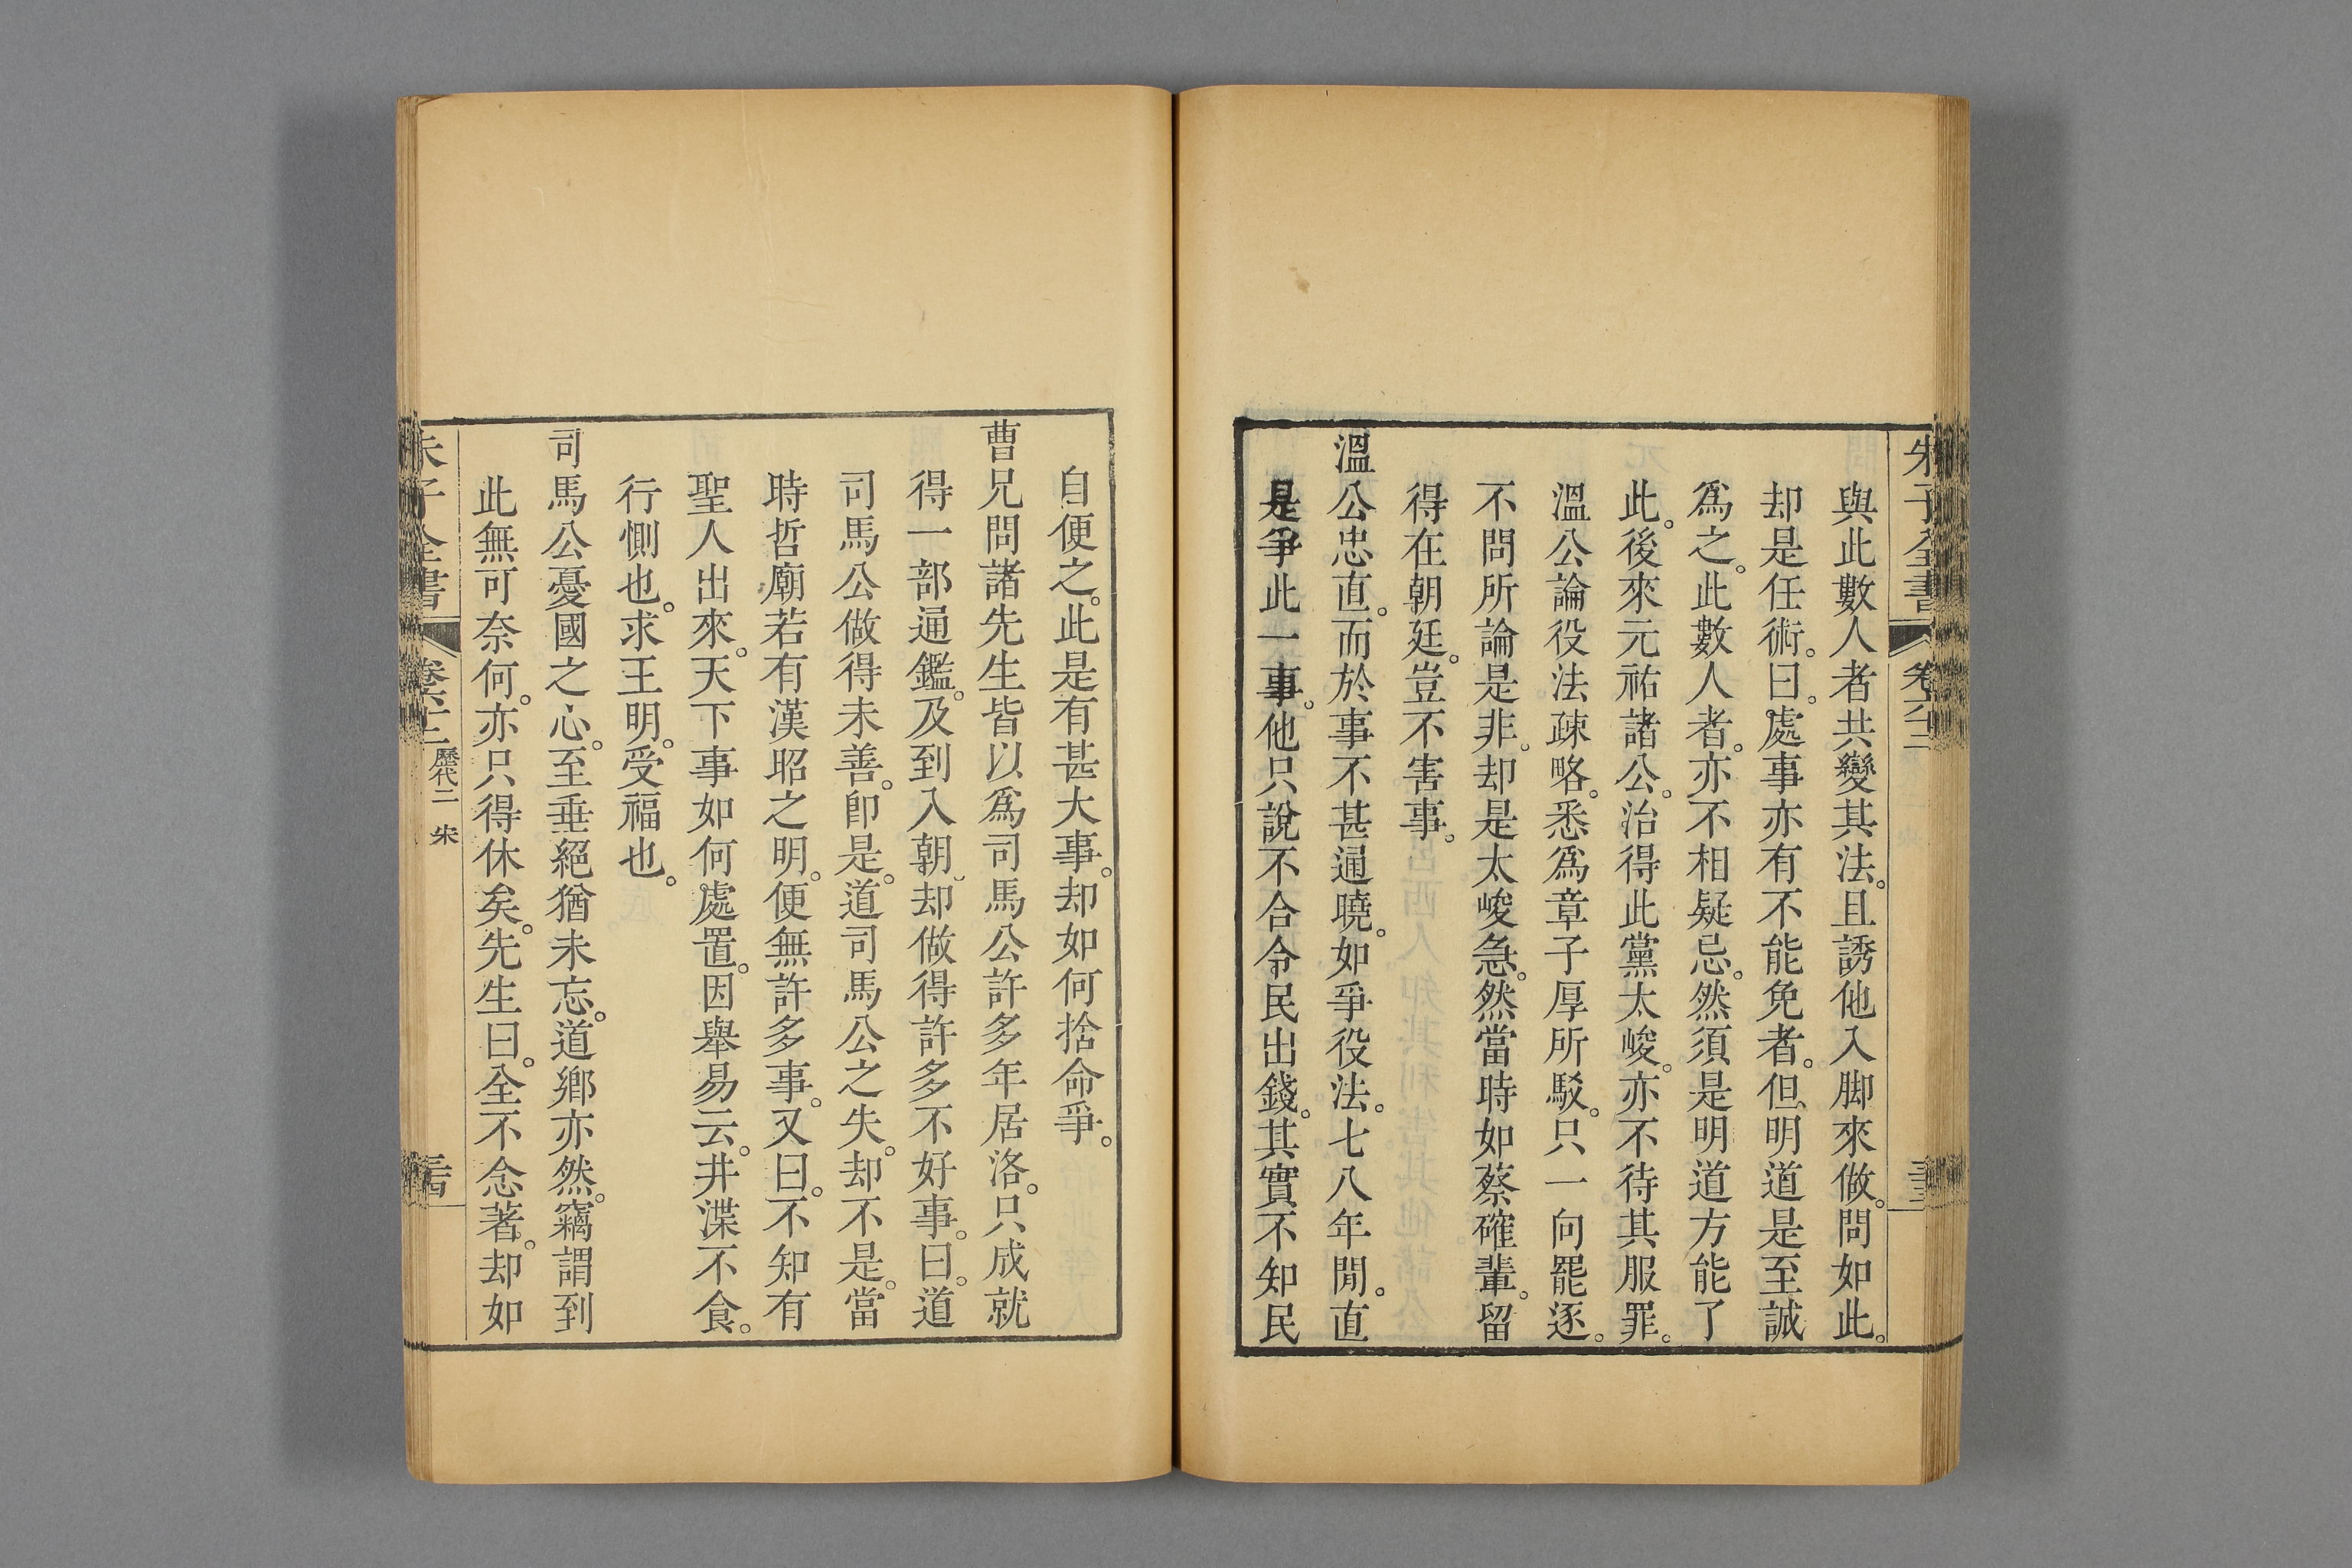 朱子全書 卷六二
與此數人者共變其法。且誘他入脚來做。問如此。
却是任術。曰。處事亦有不能免者。但、明道是至誠
爲之。此數人者。亦不相疑忌。然須是明道方能了
此。後來元祐諸公。治得此黨太峻。亦不待其服罪。
溫公論役法疎略。悉爲章子厚所駁。只一向罷逐。
不問所論是非。却是太峻急。然當時如蔡確輩。留
得在朝廷。豈不害事。
溫公忠直。而於事不甚通曉。如爭役法。七八年閒。直
是爭此一事。他只說不合令民出錢。其實不知民
自便之。此是有甚大事。却如何捨命爭。
曹兄問諸先生皆以爲司馬公許多年居洛。只成就
得一部通鑑。及到入朝、却做得許多不好事。曰。道
司馬公做得未善。卽是。道司馬公之失。却不是。當
時哲廟若有漢昭之明。便無許多事。又曰。不知有
聖人出來。天下事如何處置。因舉易云。井渫不食。
行惻也。求王明。受福也。
司馬公憂國之心。至垂絕猶未忘。道鄉亦然。竊謂到
此無可奈何。亦只得休矣。先生曰。全不念著。却如
朱子全書 卷六十二 歷代二 宋